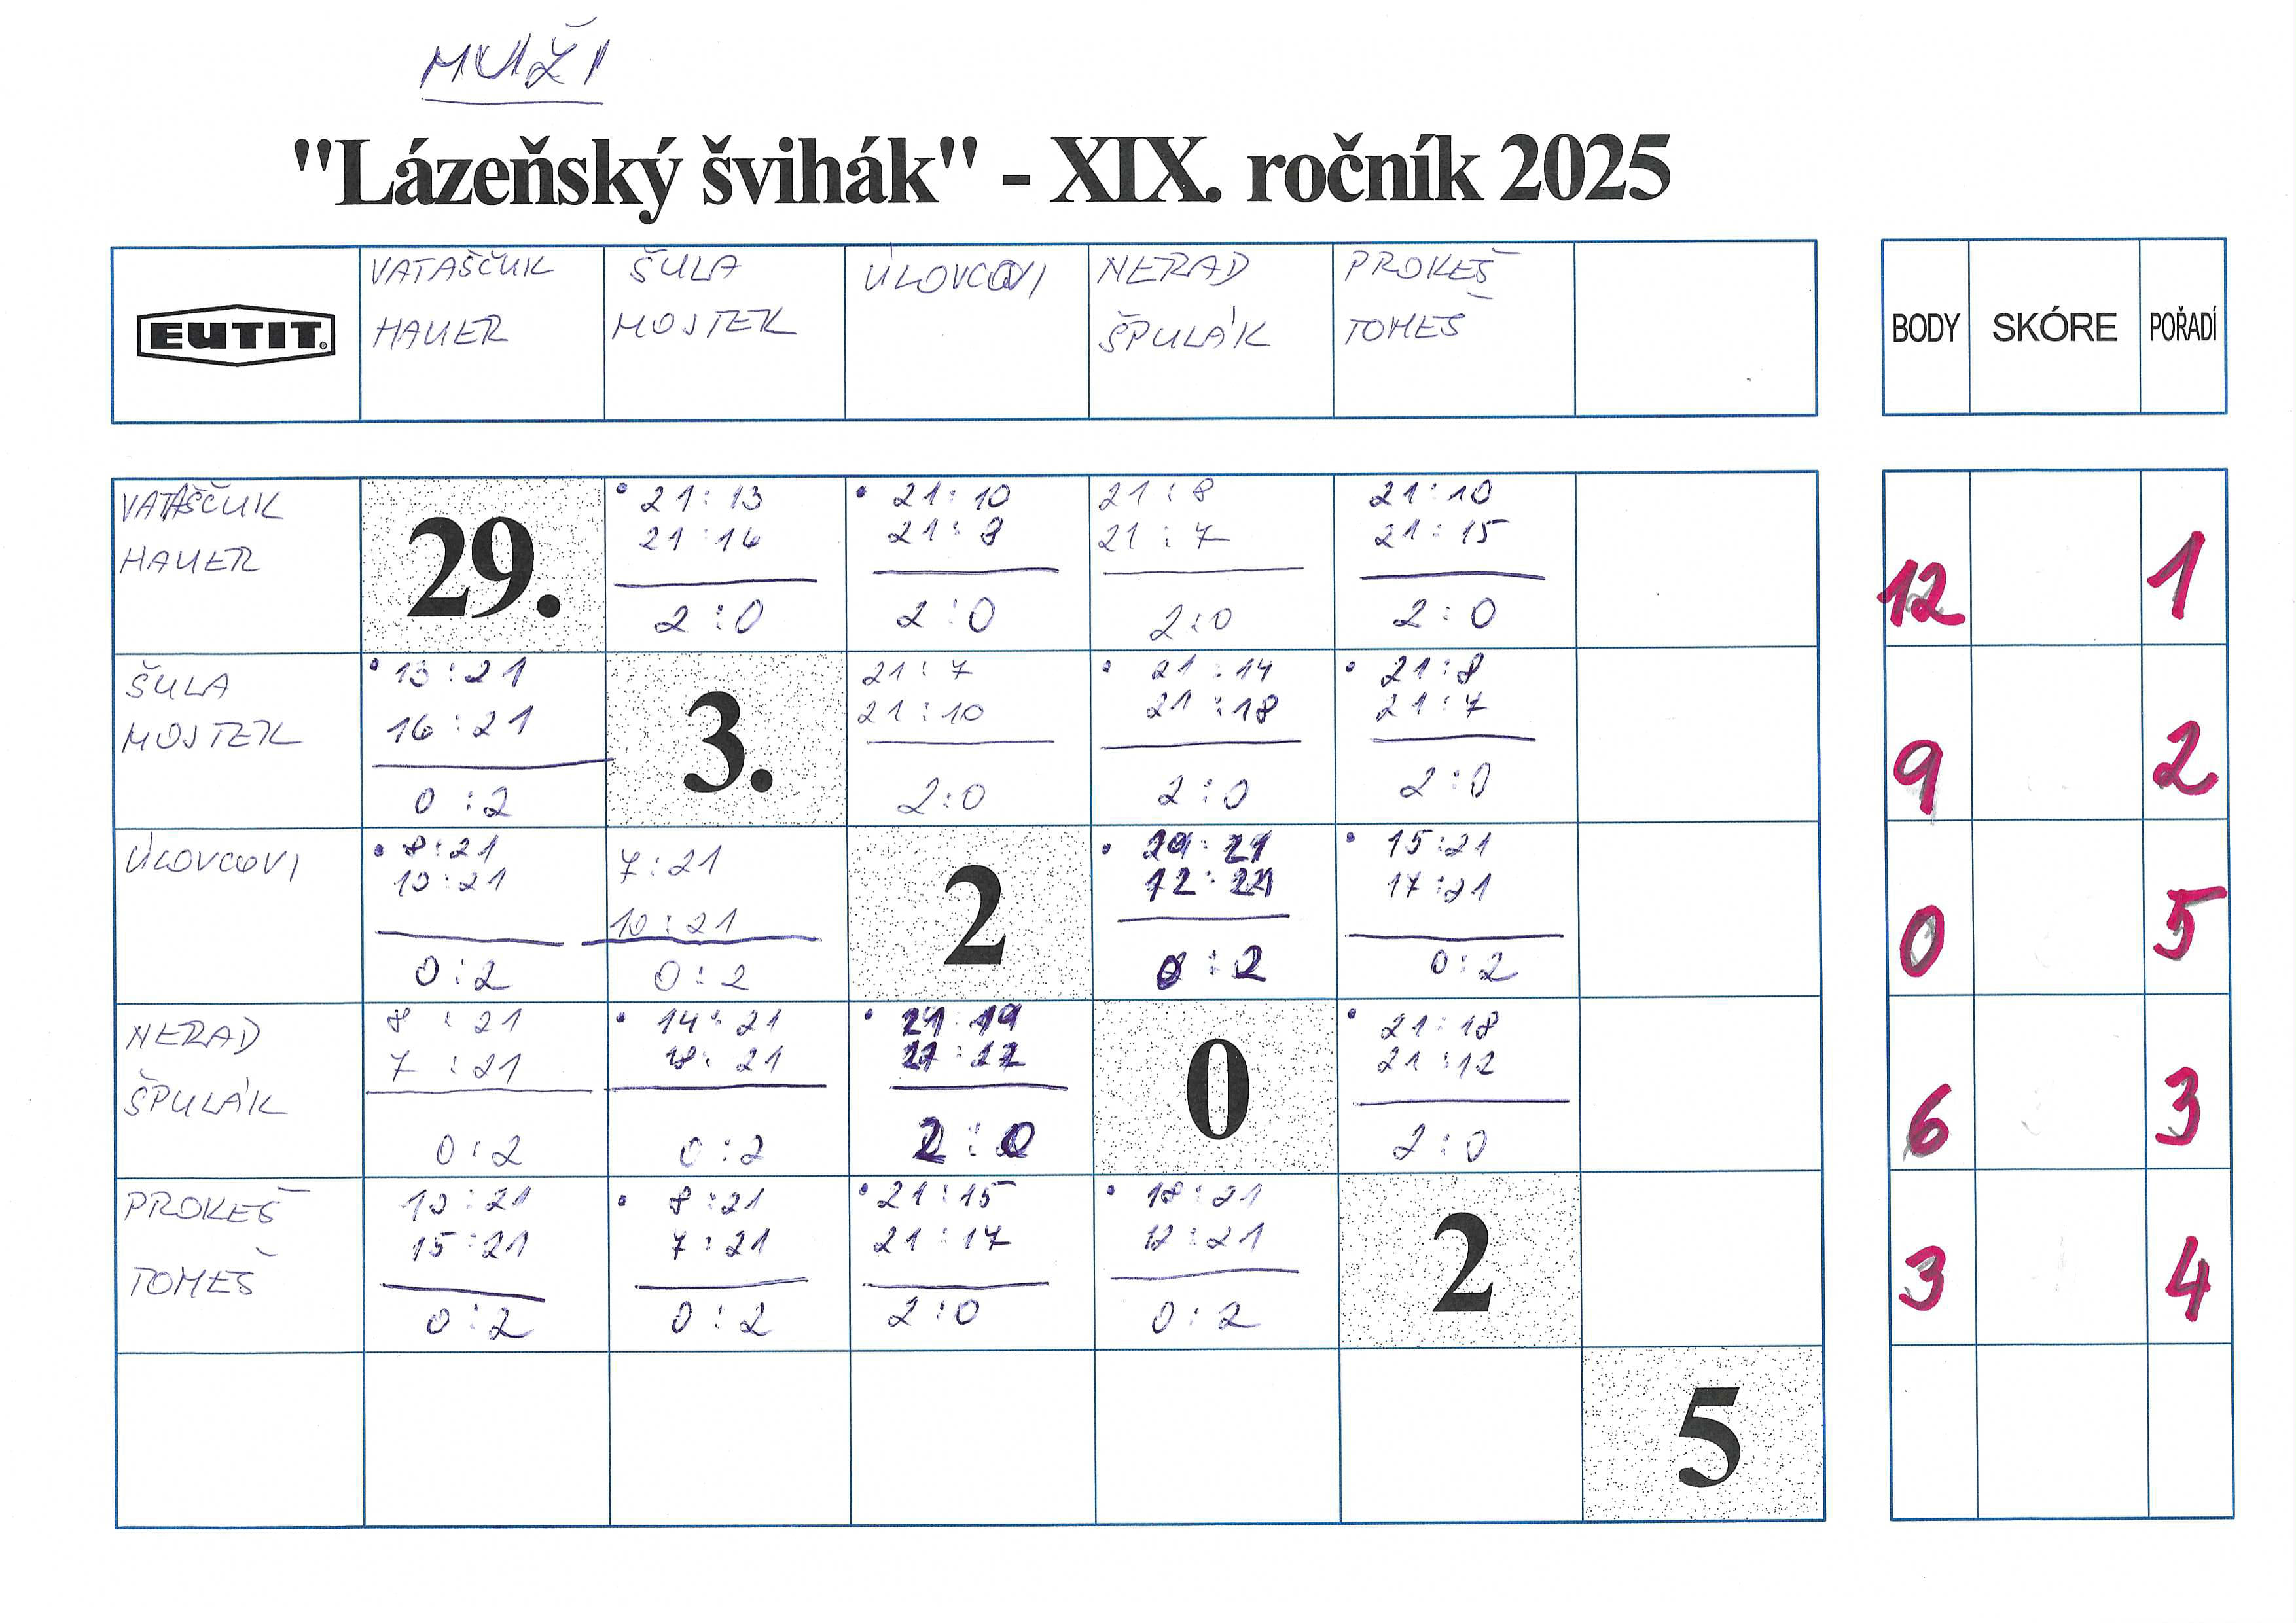 MUŽI
"Lázeňský švihák" - XIX. ročník 2025
EUTIT® VATAŠČUK HAUER ŠULA MOSTEK ÚLOVCOVI NERAD ŠPULÁK PROKEŠ TOMEŠ BODY SKÓRE POŘADÍ
VATAŠČUK 21:13 21:10 21:8 21:10
HAUER 29. 21:16 21:8 21:7 21:15
2:0 2:0 2:0 2:0 12 1
ŠULA 13:21 21:7 21:14 21:8
MOSTEK 16:21 3. 21:10 21:18 21:7
0:2 2:0 2:0 2:0 9 2
ÚLOVCOVI 8:21 7:21 15:21
10:21 10:21 2 12:21 17:21
0:2 0:2 0:2 0:2 0 5
NERAD 8:21 14:21 21:19 21:18
ŠPULÁK 7:21 18:21 0 21:12
0:2 0:2 2:0 2:0 6 3
PROKEŠ 10:21 8:21 21:15 18:21
TOMEŠ 15:21 7:21 21:17 12:21 2
0:2 0:2 2:0 0:2 3 4
5